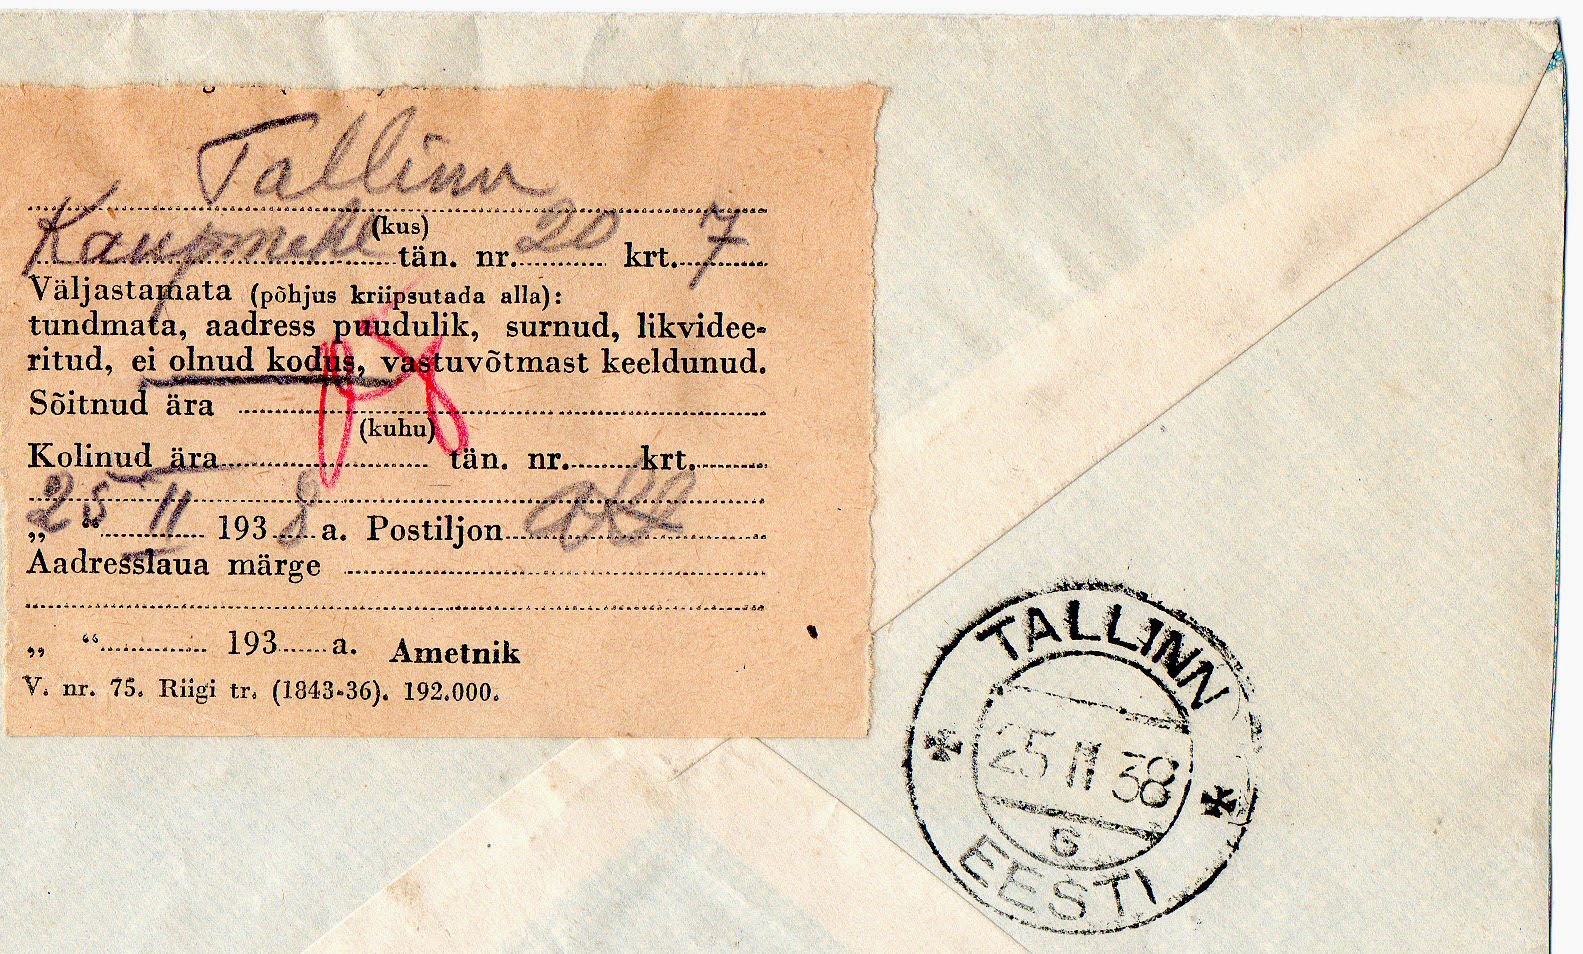 Tallinn
(kus)
Kaupmehe tän. nr. 20 krt. 7
Väljastamata (põhjus kriipsutada alla):
tundmata, aadress puudulik, surnud, likvidee-
ritud, ei olnud kodus, vastuvõtmast keeldunud.
Sõitnud ära
(kuhu)
Kolinud ära tän. nr. krt.
„25“ II 1938 a. Postiljon
Aadresslaua märge
„ “ 193 a. Ametnik
V. nr. 75. Riigi tr. (1843-36). 192.000.
TALLINN
25 II 38
G
EESTI